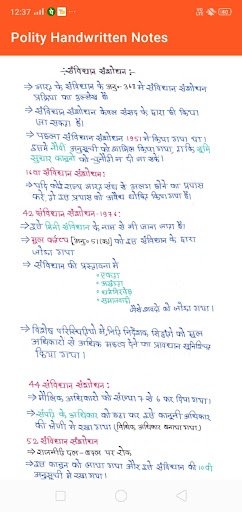 12:37
Polity Handwritten Notes
:- संविधान संशोधन :-
→ भारत के संविधान के अनु०-368 में संविधान संशोधन
प्रक्रिया का उल्लेख है
→ संविधान संशोधन केवल संसद के द्वारा ही किया
जा सकता है।
→ पहला संविधान संशोधन 1951 में किया गया था।
इसमें नौवीं अनुसूची को शामिल किया गया, ताकि भूमि
सुधार कानूनों को चुनौती न दी जा सके।
16वां संविधान संशोधन:
→ यदि कोई राज्य भारत संघ से अलग होने का प्रयास
करे, तो उस प्रयास को अवैध घोषित किया गया है।
42 संविधान संशोधन-1976:
→ इसे मिनी संविधान के नाम से भी जाना जाता है।
→ मूल कर्तव्य [अनु०-51(क)] को इस संविधान के द्वारा
जोड़ा गया।
→ संविधान की प्रस्तावना में
→ एकता
→ अखंडता
→ पंथनिरपेक्ष
→ समाजवादी
जैसे शब्दों को जोड़ा गया।
→ विशेष परिस्थितियों में, निति निदेशक सिद्धांतों को मूल
अधिकारों से अधिक महत्व देने का प्रावधान सुनिश्चित
किया गया।
44 संविधान संशोधन:
→ मौलिक अधिकारों की संख्या 7 से 6 कर दिया गया।
→ संपत्ति के अधिकार को हटा कर उसे कानूनी अधिकार
की श्रेणी में रखा गया। (विधिक अधिकार बनाया गया)
52 संविधान संशोधन
→ राजनीति दल-बदल पर रोक
→ इस कानून को लाया गया और इसे संविधान की 10वीं
अनुसूची में रखा गया।